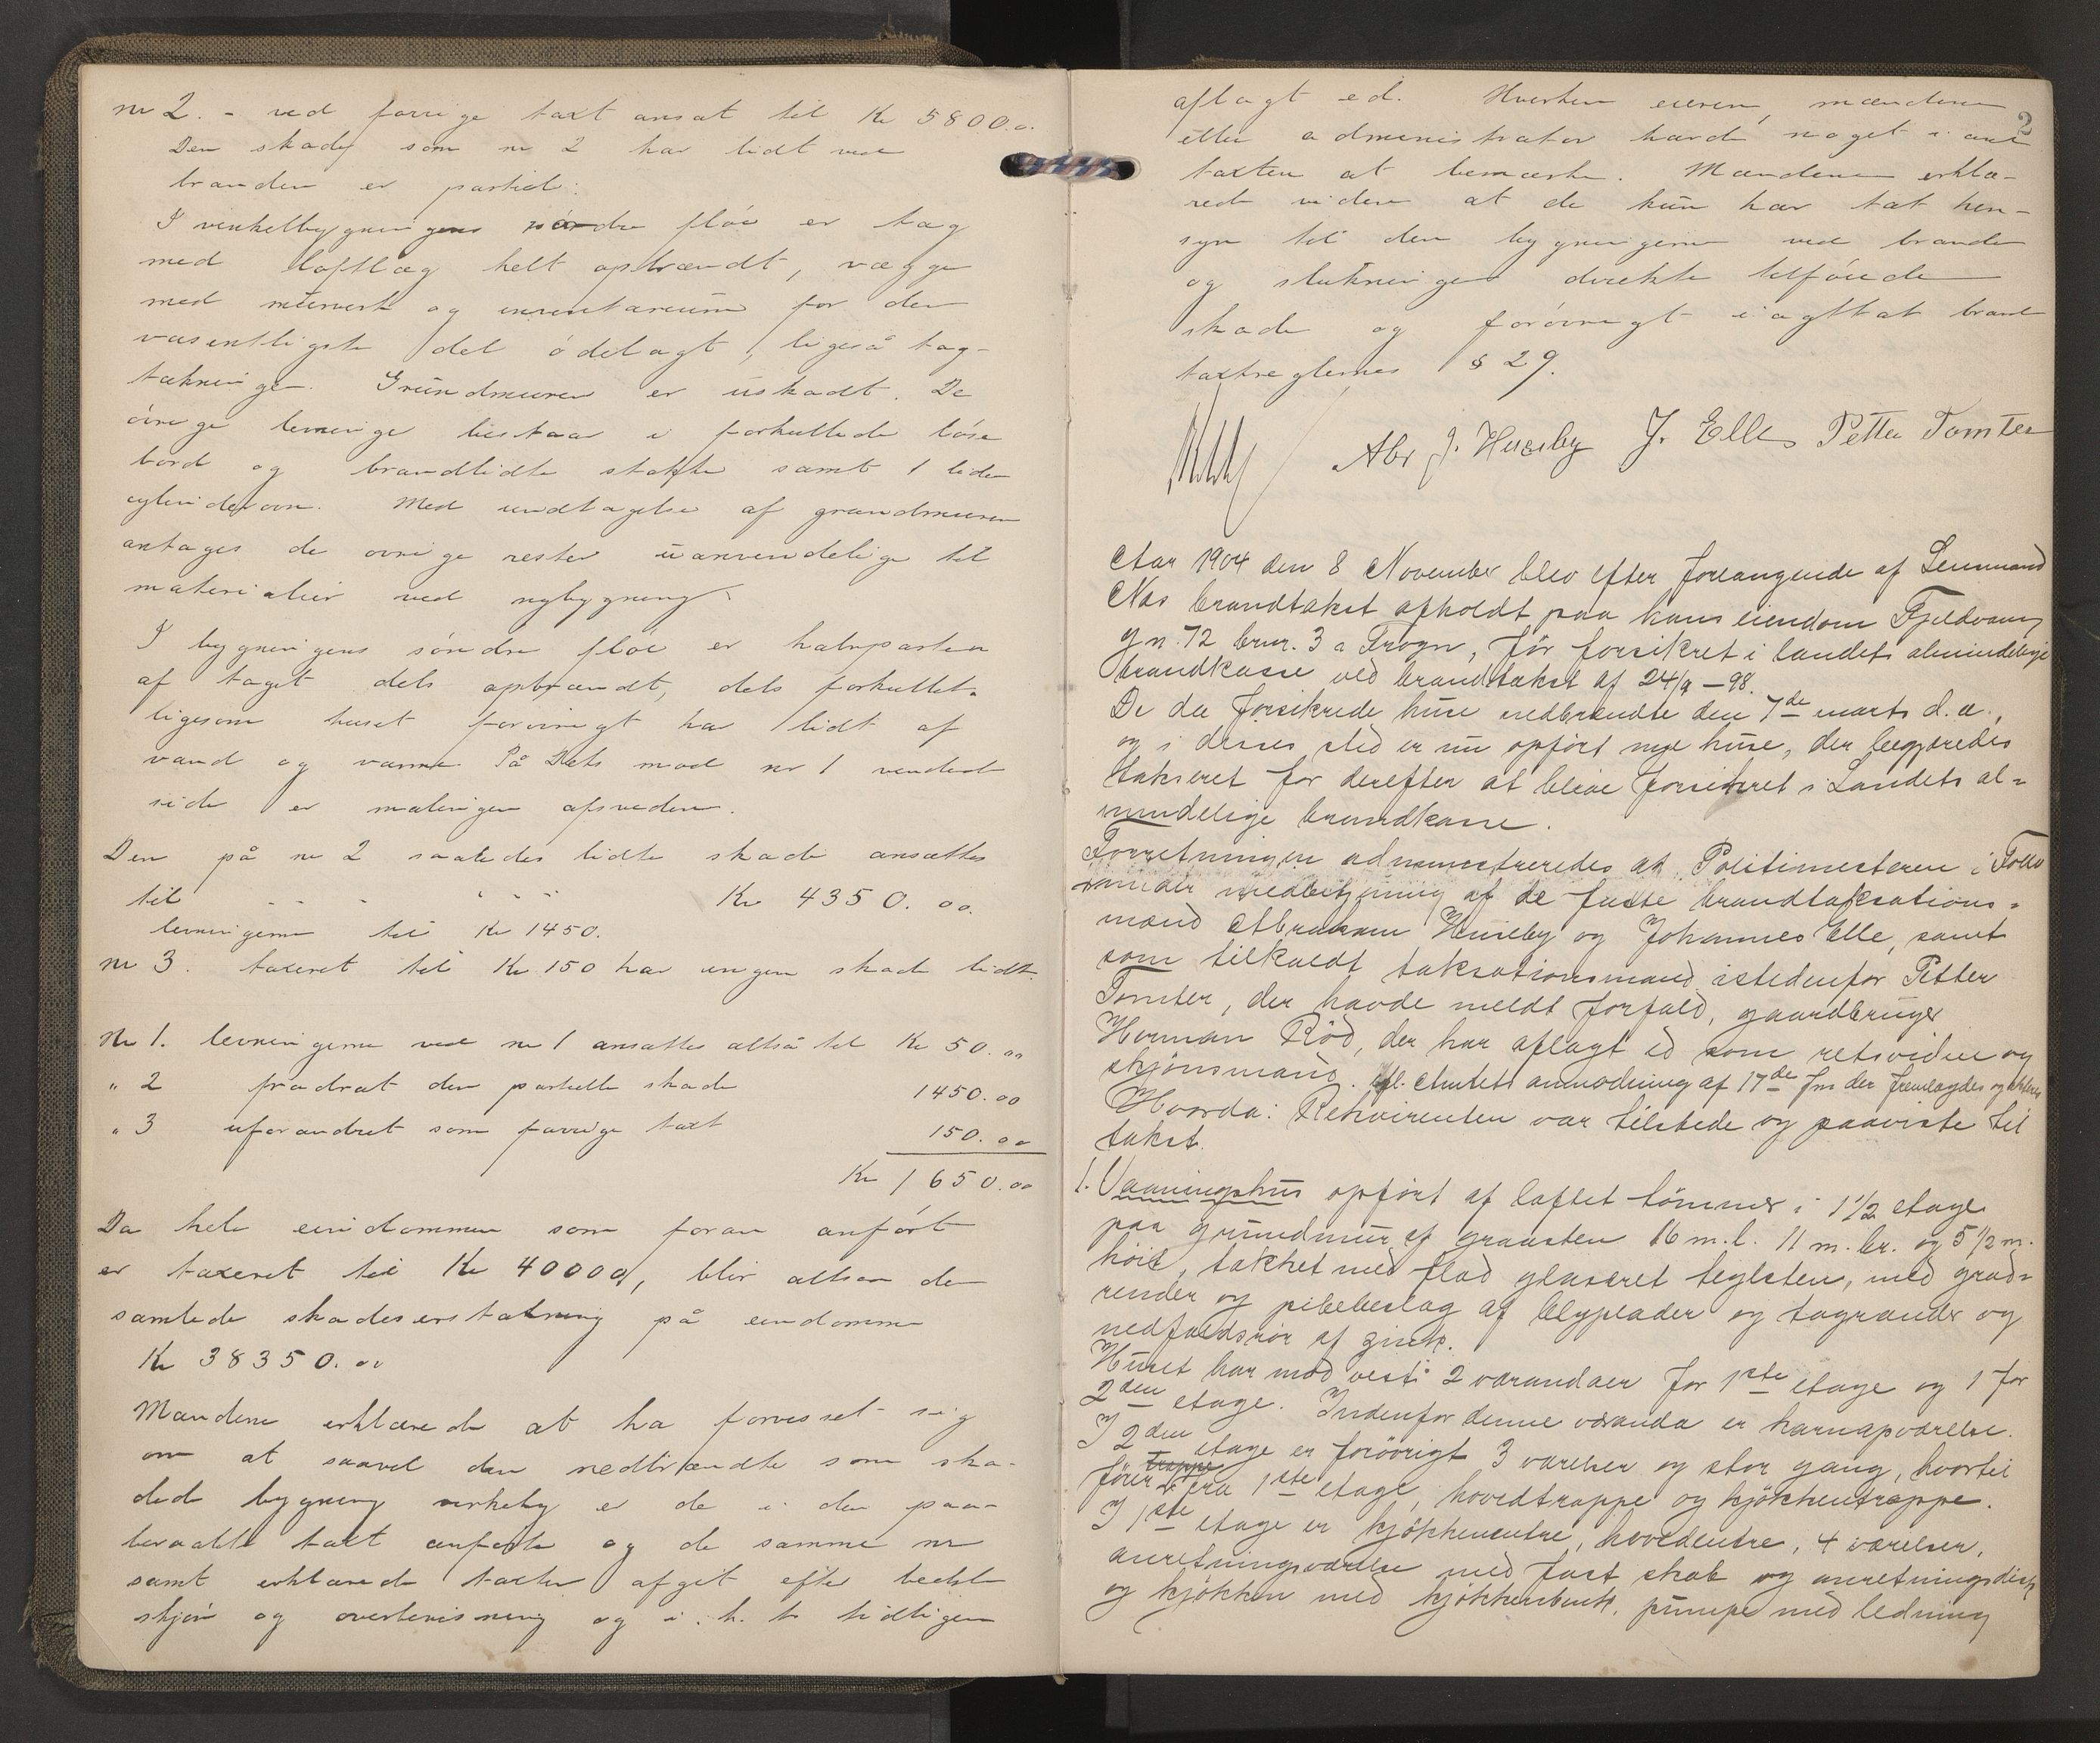 nr 2. - ved forrige taxt ansat til Kr 5800.00
Den skade som nr 2 har lidt ved
branden er partiel.
I vinkelbygningens nordre fløi er tag
med loftlag helt opbrændt, vægge
med murverk og inventarium for den
væsentligste del ødelagt, ligeså tag-
tækningen. Grundmuren er uskadt. De
øvrige levninger bestaar i forkullede løse
bord og brandlidte stokke samt 1 liden
cylinderovn. Med undtagelse af grundmuren
antages de øvrige rester uanvendelige til
materialier ved nybygning.
I bygningens søndre fløi er halvparten
af taget dels opbrændt, dels forkullet,
ligesom huset forøvrigt har lidt af
vand og varme. På dets mod nr 1 vendende
side er malingen afsveden.
Den på nr 2 saaledes lidte skade ansættes
til - - - - - - Kr 4350.00.
levningerne til Kr 1450.
nr 3. taxeret til Kr 150 har ingen skade lidt.
Nr 1. levningerne ved nr 1 ansættes altså til Kr 50.00
" 2 fradrat den partielle skade 1450.00
" 3 uforandret som forrige taxt 150.00
Kr 1650.00
Da hele eiendommen som foran anført
er taxeret til Kr 40000, blir altsaa den
samlede skadeserstatning på eiendommen
Kr 38350.00
Mændene erklærede at ha forvisset sig
om at saavel den nedbrændte som ska-
dede bygning virkelig er de i den paa-
beraabte taxt anførte og de samme nr
samt erklærede taxten afgit efter bedste
skjøn og overbevisning og i h. t. tidligere
2
aflagt ed. Hverken eieren, mændene
eller administrator havde noget i anl
taxten at bemærke. Mændene erklæ-
rede videre at de kun har tat hen-
syn til den bygningerne ved branden
og slukningen direkte tilføiede
skade og forøvrigt iagttat brand
taxtreglernes § 29.
Abr J. Huseby J. Elle Petter Tomter
Aar 1904 den 8 November blev efter forlangende af Lensmand
Næs brandtakst afholdt paa hans eiendom Fjeldvang
g.n. 72 brnr. 3 a Frogn, før forsikret i landets almindelige
brandkasse ved brandtakst af 24/9 - 98.
De da forsikrede huse nedbrændte den 7de marts d. a.,
og i deres sted er nu opført nye huse, der begjæredes
takseret for derefter at blive forsikret i Landets al=
mindelige brandkasse.
Forretningen administreredes af Politimesteren i Follo
under medbetjening af de faste brandtaksations=
mænd Abraham Huseby og Johannes Elle, samt
som tilkaldt taksationsmand istedenfor Petter
Tomter, der havde meldt forfald, gaardbruger
Herman Röd, der har aflagt ed som retsvidne og
skjønsmand. Amtets anmodning af 17de fm der fremlagdes og
Hvorda: Rekvirenten var tilstede og paaviste til
takst.
1. Vaaningshus opført af laftet tømmer i 1 1/2 etage
paa grundmur af graasten 16 m. l. 11 m. br. og 5 1/2 m.
høit, takket med flad glaseret teglsten, med grad=
render og pibebeslag af blyplader og tagrender og
nedfaldsrör af zink.
Huset har mod vest 2 verandaer for 1ste etage og 1 for
2den etage. Indenfor denne veranda er karnapværelse.
I 2den etage er forøvrigt 3 værelser og stor gang, hvortil
förer trappe fra 1ste etage, hovedtrappe og kjökkentrappe.
I 1ste etage er kjökkenentre, hovedentre, 4 værelser,
anretningsværelse med fast skab og anretningsdisk
og kjökken med kjökkenbænk, pumpe med ledning